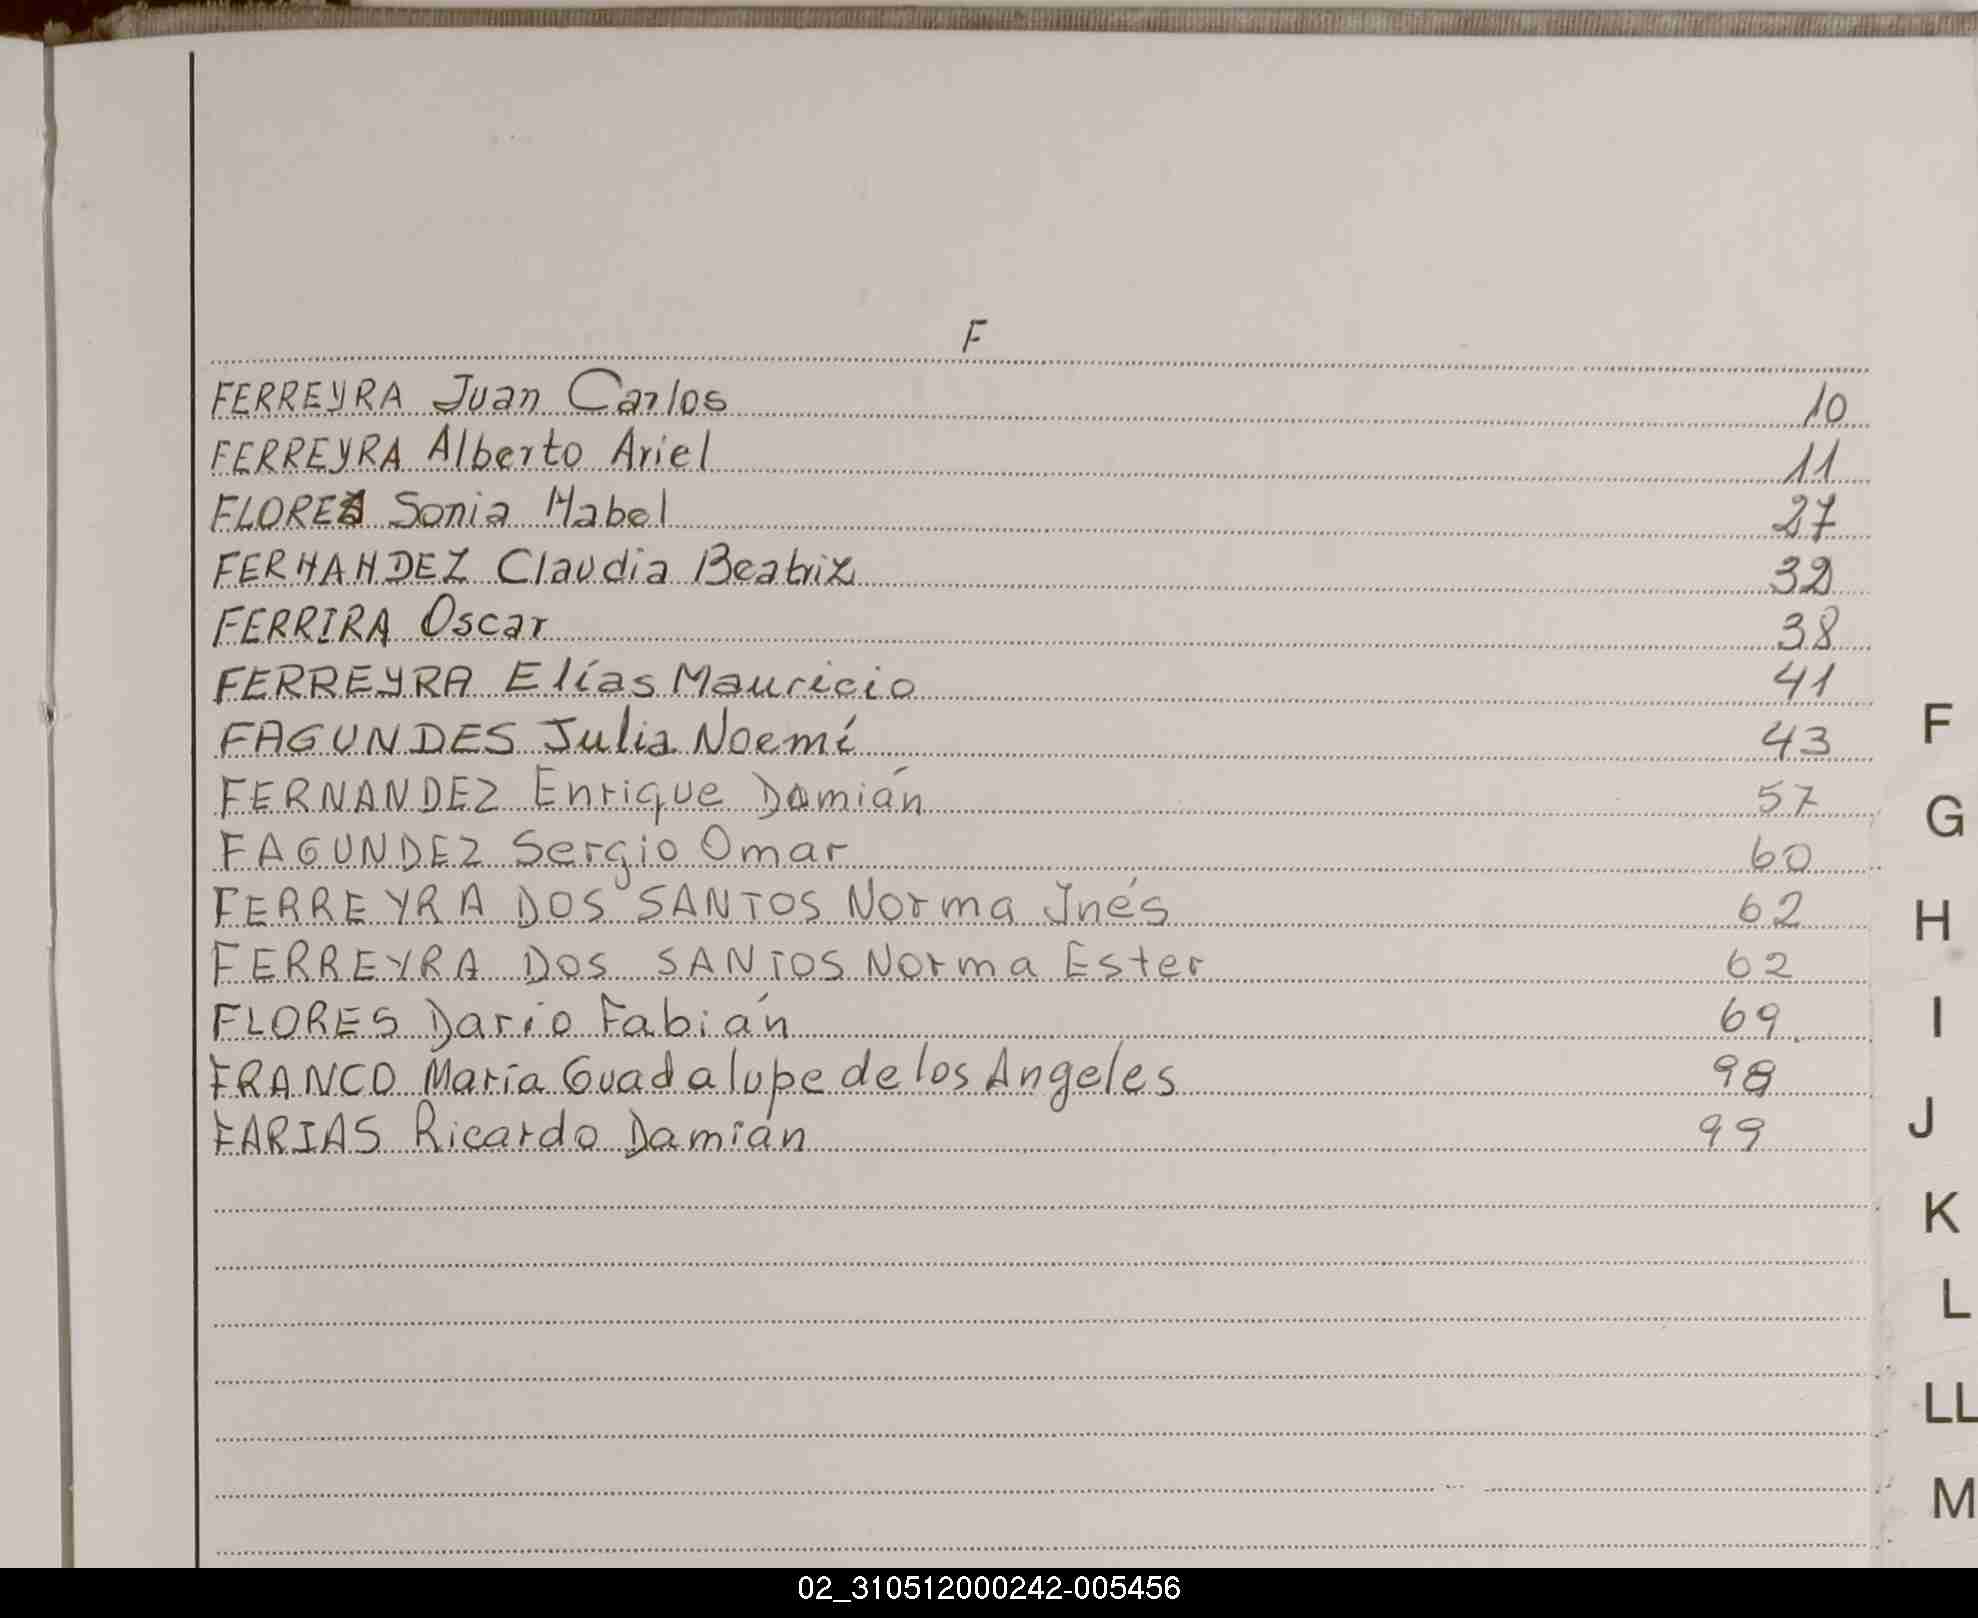 F
FERREYRA Juan Carlos 10
FERREYRA Alberto Ariel 11
FLORES Sonia Mabel 27
FERNANDEZ Claudia Beatriz 32
FERRIRA Oscar 38
FERREYRA Elías Mauricio 41
FAGUNDES Julia Noemí 43
FERNANDEZ Enrique Damián 57
FAGUNDEZ Sergio Omar 60
FERREYRA DOS SANTOS Norma Inés 62
FERREYRA DOS SANTOS Norma Ester 62
FLORES Darío Fabián 69
FRANCO María Guadalupe de los Angeles 98
FARIAS Ricardo Damián 99
F
G
H
I
J
K
L
LL
M
02_310512000242-005456